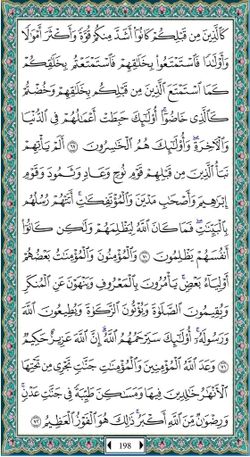 كَٱلَّذِينَ مِن قَبْلِكُمْ كَانُوٓا۟ أَشَدَّ مِنكُمْ قُوَّةً وَأَكْثَرَ أَمْوَٰلًا
وَأَوْلَٰدًا فَٱسْتَمْتَعُوا۟ بِخَلَٰقِهِمْ فَٱسْتَمْتَعْتُم بِخَلَٰقِكُمْ
كَمَا ٱسْتَمْتَعَ ٱلَّذِينَ مِن قَبْلِكُم بِخَلَٰقِهِمْ وَخُضْتُمْ
كَٱلَّذِى خَاضُوٓا۟ أُو۟لَٰٓئِكَ حَبِطَتْ أَعْمَٰلُهُمْ فِى ٱلدُّنْيَا
وَٱلْءَاخِرَةِ وَأُو۟لَٰٓئِكَ هُمُ ٱلْخَٰسِرُونَ ٦٩ أَلَمْ يَأْتِهِمْ
نَبَأُ ٱلَّذِينَ مِن قَبْلِهِمْ قَوْمِ نُوحٍ وَعَادٍ وَثَمُودَ وَقَوْمِ
إِبْرَٰهِيمَ وَأَصْحَٰبِ مَدْيَنَ وَٱلْمُؤْتَفِكَٰتِ أَتَتْهُمْ رُسُلُهُم
بِٱلْبَيِّنَٰتِ فَمَا كَانَ ٱللَّهُ لِيَظْلِمَهُمْ وَلَٰكِن كَانُوٓا۟
أَنفُسَهُمْ يَظْلِمُونَ ٧٠ وَٱلْمُؤْمِنُونَ وَٱلْمُؤْمِنَٰتُ بَعْضُهُمْ
أَوْلِيَآءُ بَعْضٍ يَأْمُرُونَ بِٱلْمَعْرُوفِ وَيَنْهَوْنَ عَنِ ٱلْمُنكَرِ
وَيُقِيمُونَ ٱلصَّلَوٰةَ وَيُؤْتُونَ ٱلزَّكَوٰةَ وَيُطِيعُونَ ٱللَّهَ
وَرَسُولَهُۥٓ أُو۟لَٰٓئِكَ سَيَرْحَمُهُمُ ٱللَّهُ إِنَّ ٱللَّهَ عَزِيزٌ حَكِيمٌ
٧١ وَعَدَ ٱللَّهُ ٱلْمُؤْمِنِينَ وَٱلْمُؤْمِنَٰتِ جَنَّٰتٍ تَجْرِى مِن تَحْتِهَا
ٱلْأَنْهَٰرُ خَٰلِدِينَ فِيهَا وَمَسَٰكِنَ طَيِّبَةً فِى جَنَّٰتِ عَدْنٍ
وَرِضْوَٰنٌ مِّنَ ٱللَّهِ أَكْبَرُ ذَٰلِكَ هُوَ ٱلْفَوْزُ ٱلْعَظِيمُ ٧٢
198